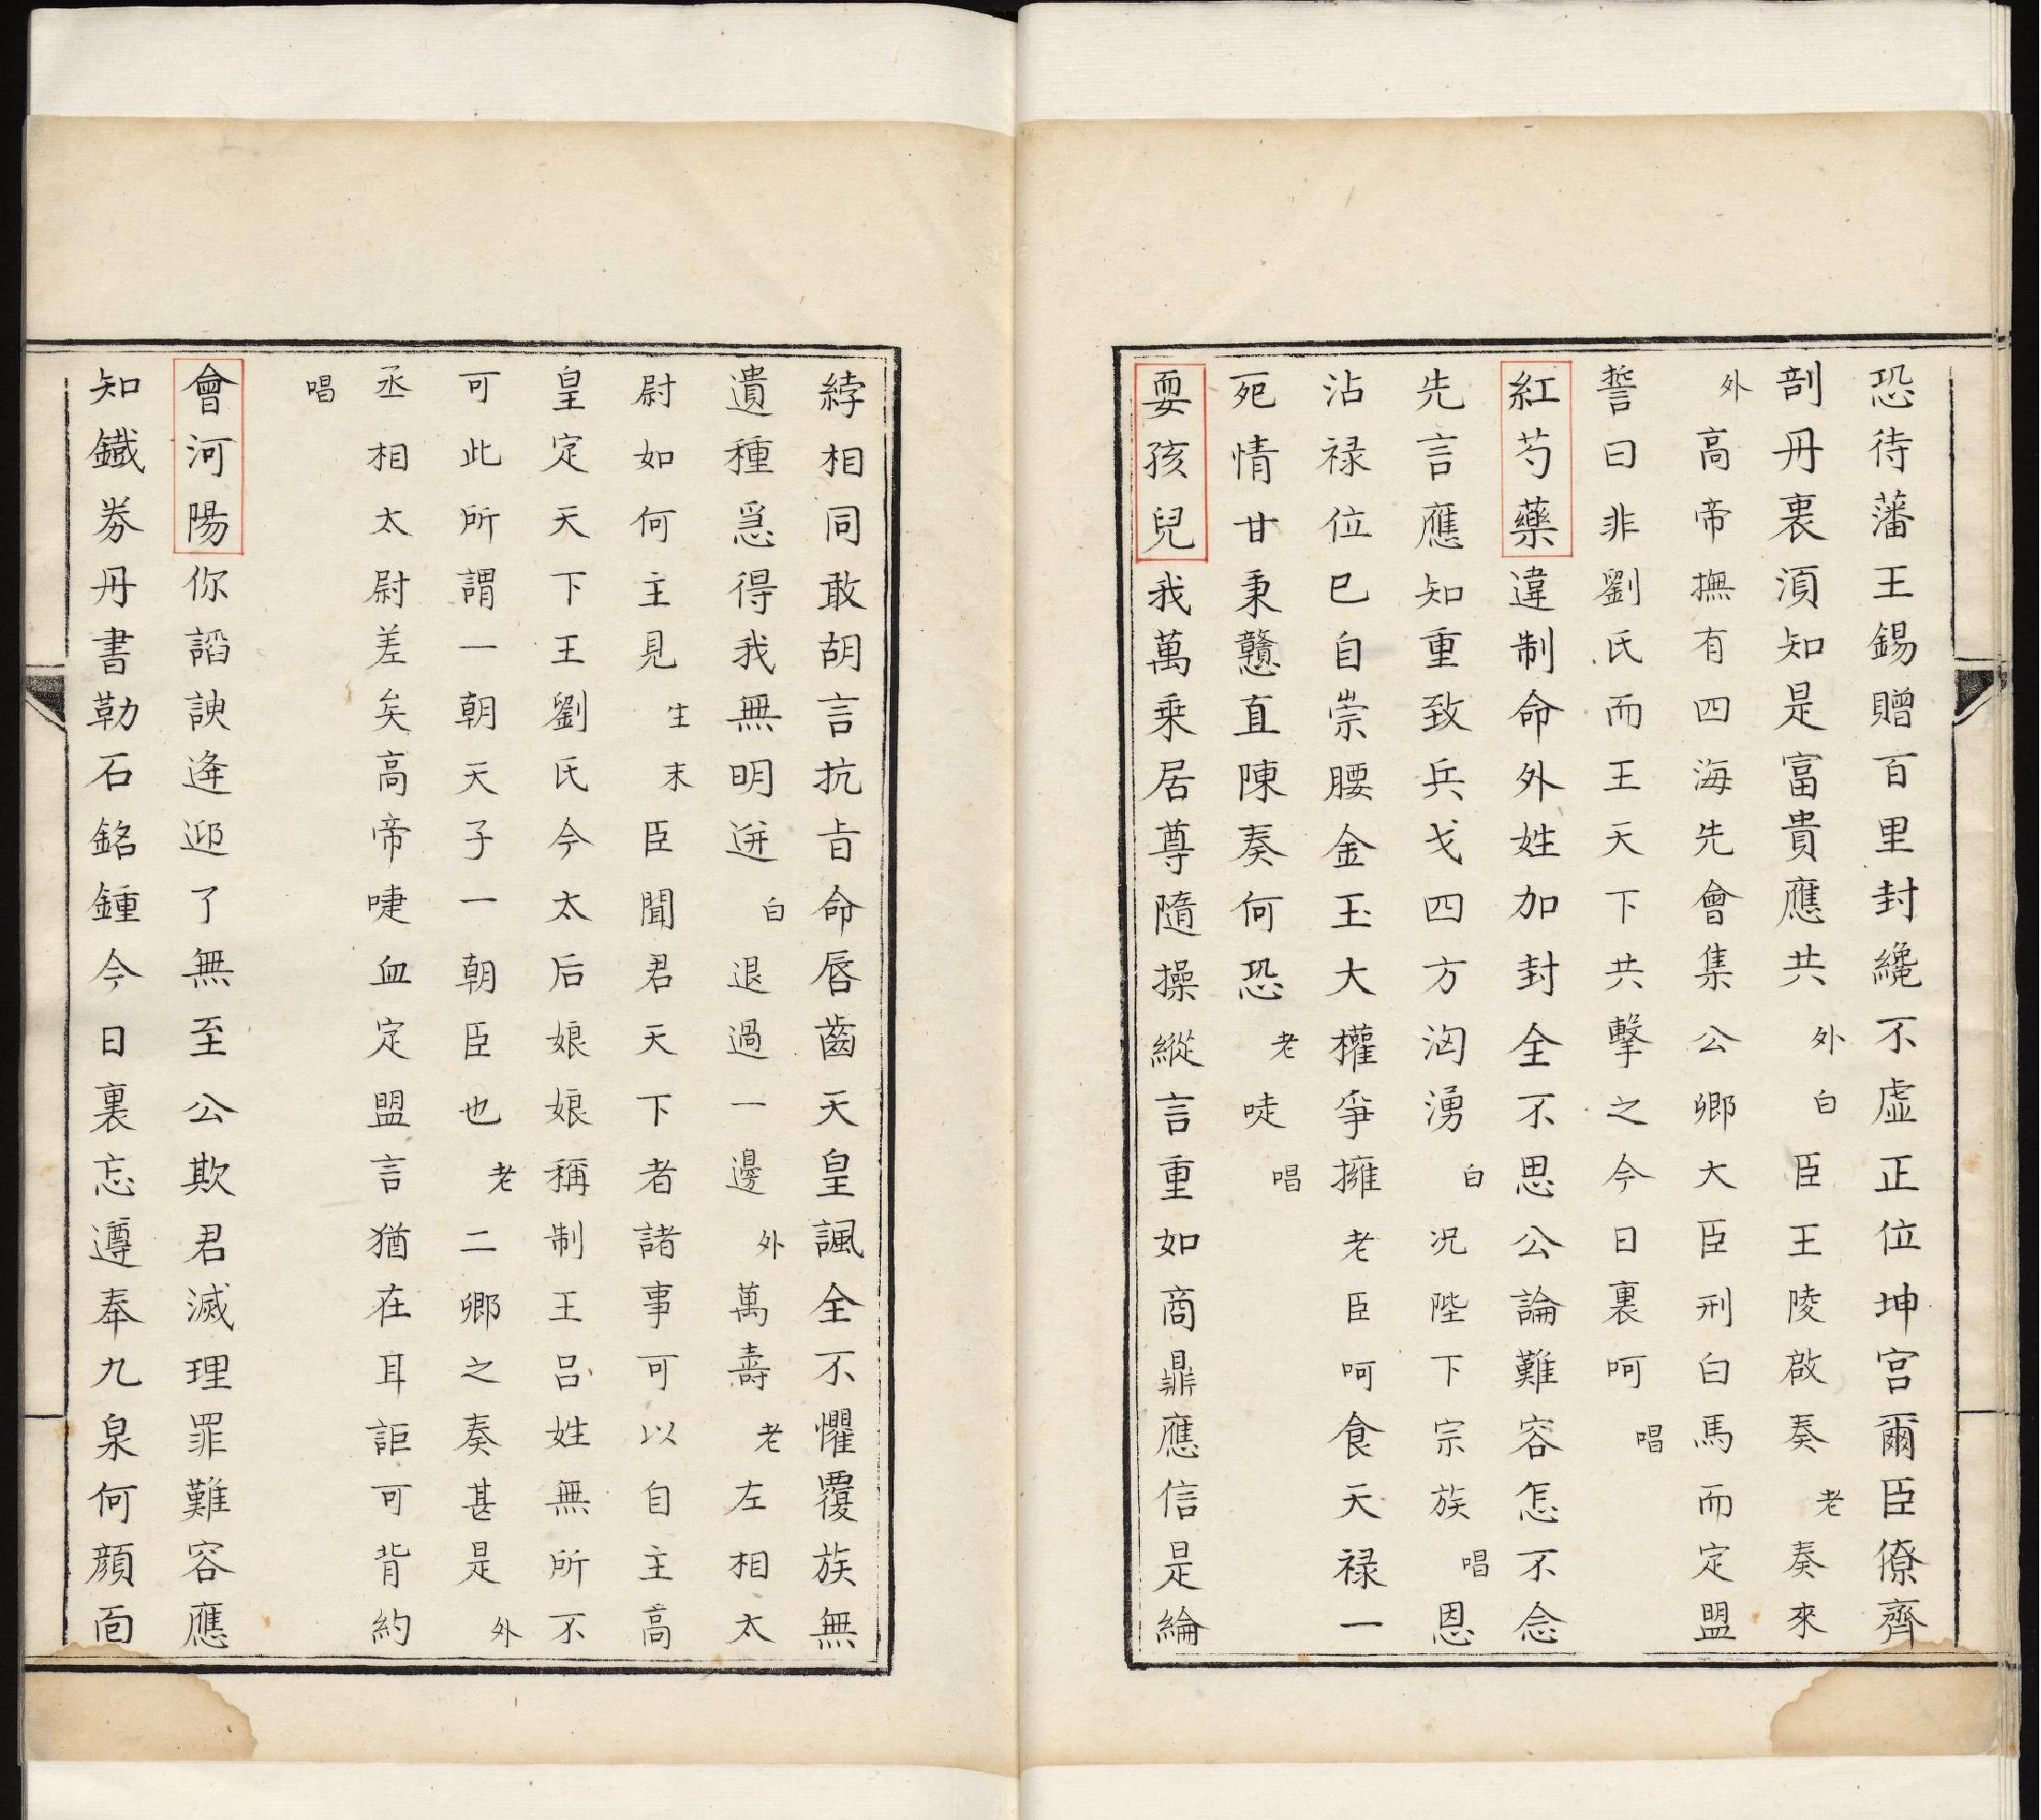 恐待藩王錫贈百里封纔不虛正位坤宮爾臣僚齊
剖丹裏湏知是富貴應共外白臣王陵啟奏老奏來
外高帝撫有四海先會集公卿大臣刑白馬而定盟
誓曰非劉氏而王天下共擊之今日裏呵唱
紅芍藥違制命外姓加封全不思公論難容怎不念
先言應知重致兵戈四方洶湧白况陛下宗族唱恩
沾祿位已自崇腰金玉大權爭擁老臣呵食天祿一
死情甘秉戇直陳奏何恐老唗唱
耍孩兒我萬乘居尊隨操縱言重如商鼎應信是綸
綍相同敢胡言抗旨命唇齒天皇諷全不懼覆族無
遺種惹得我無明迸白退過一邊外萬壽老左相太
尉如何主見生末臣聞君天下者諸事可以自主高
皇定天下王劉氏今太后娘娘稱制王呂姓無所不
可此所謂一朝天子一朝臣也老二卿之奏甚是外
丞相太尉差矣高帝啑血定盟言猶在耳詎可背約
唱
會河陽你謟諛逄迎了無至公欺君滅理罪難容應
知鐵券丹書勒石銘鍾今日裏忘遵奉九泉何顏面